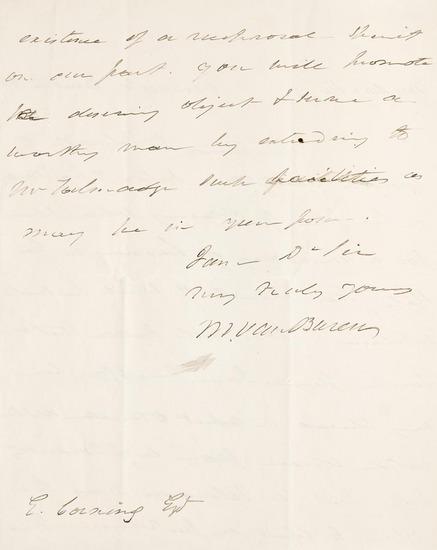 existence of a reciprocal spirit
on our part. You will promote
the deserving object & serve a
worthy man by extending to
Mr Talmadge such facilities as
may be in your power.
I am Dr Sir
very truly yours
M. Van Buren
E. Corning Esq